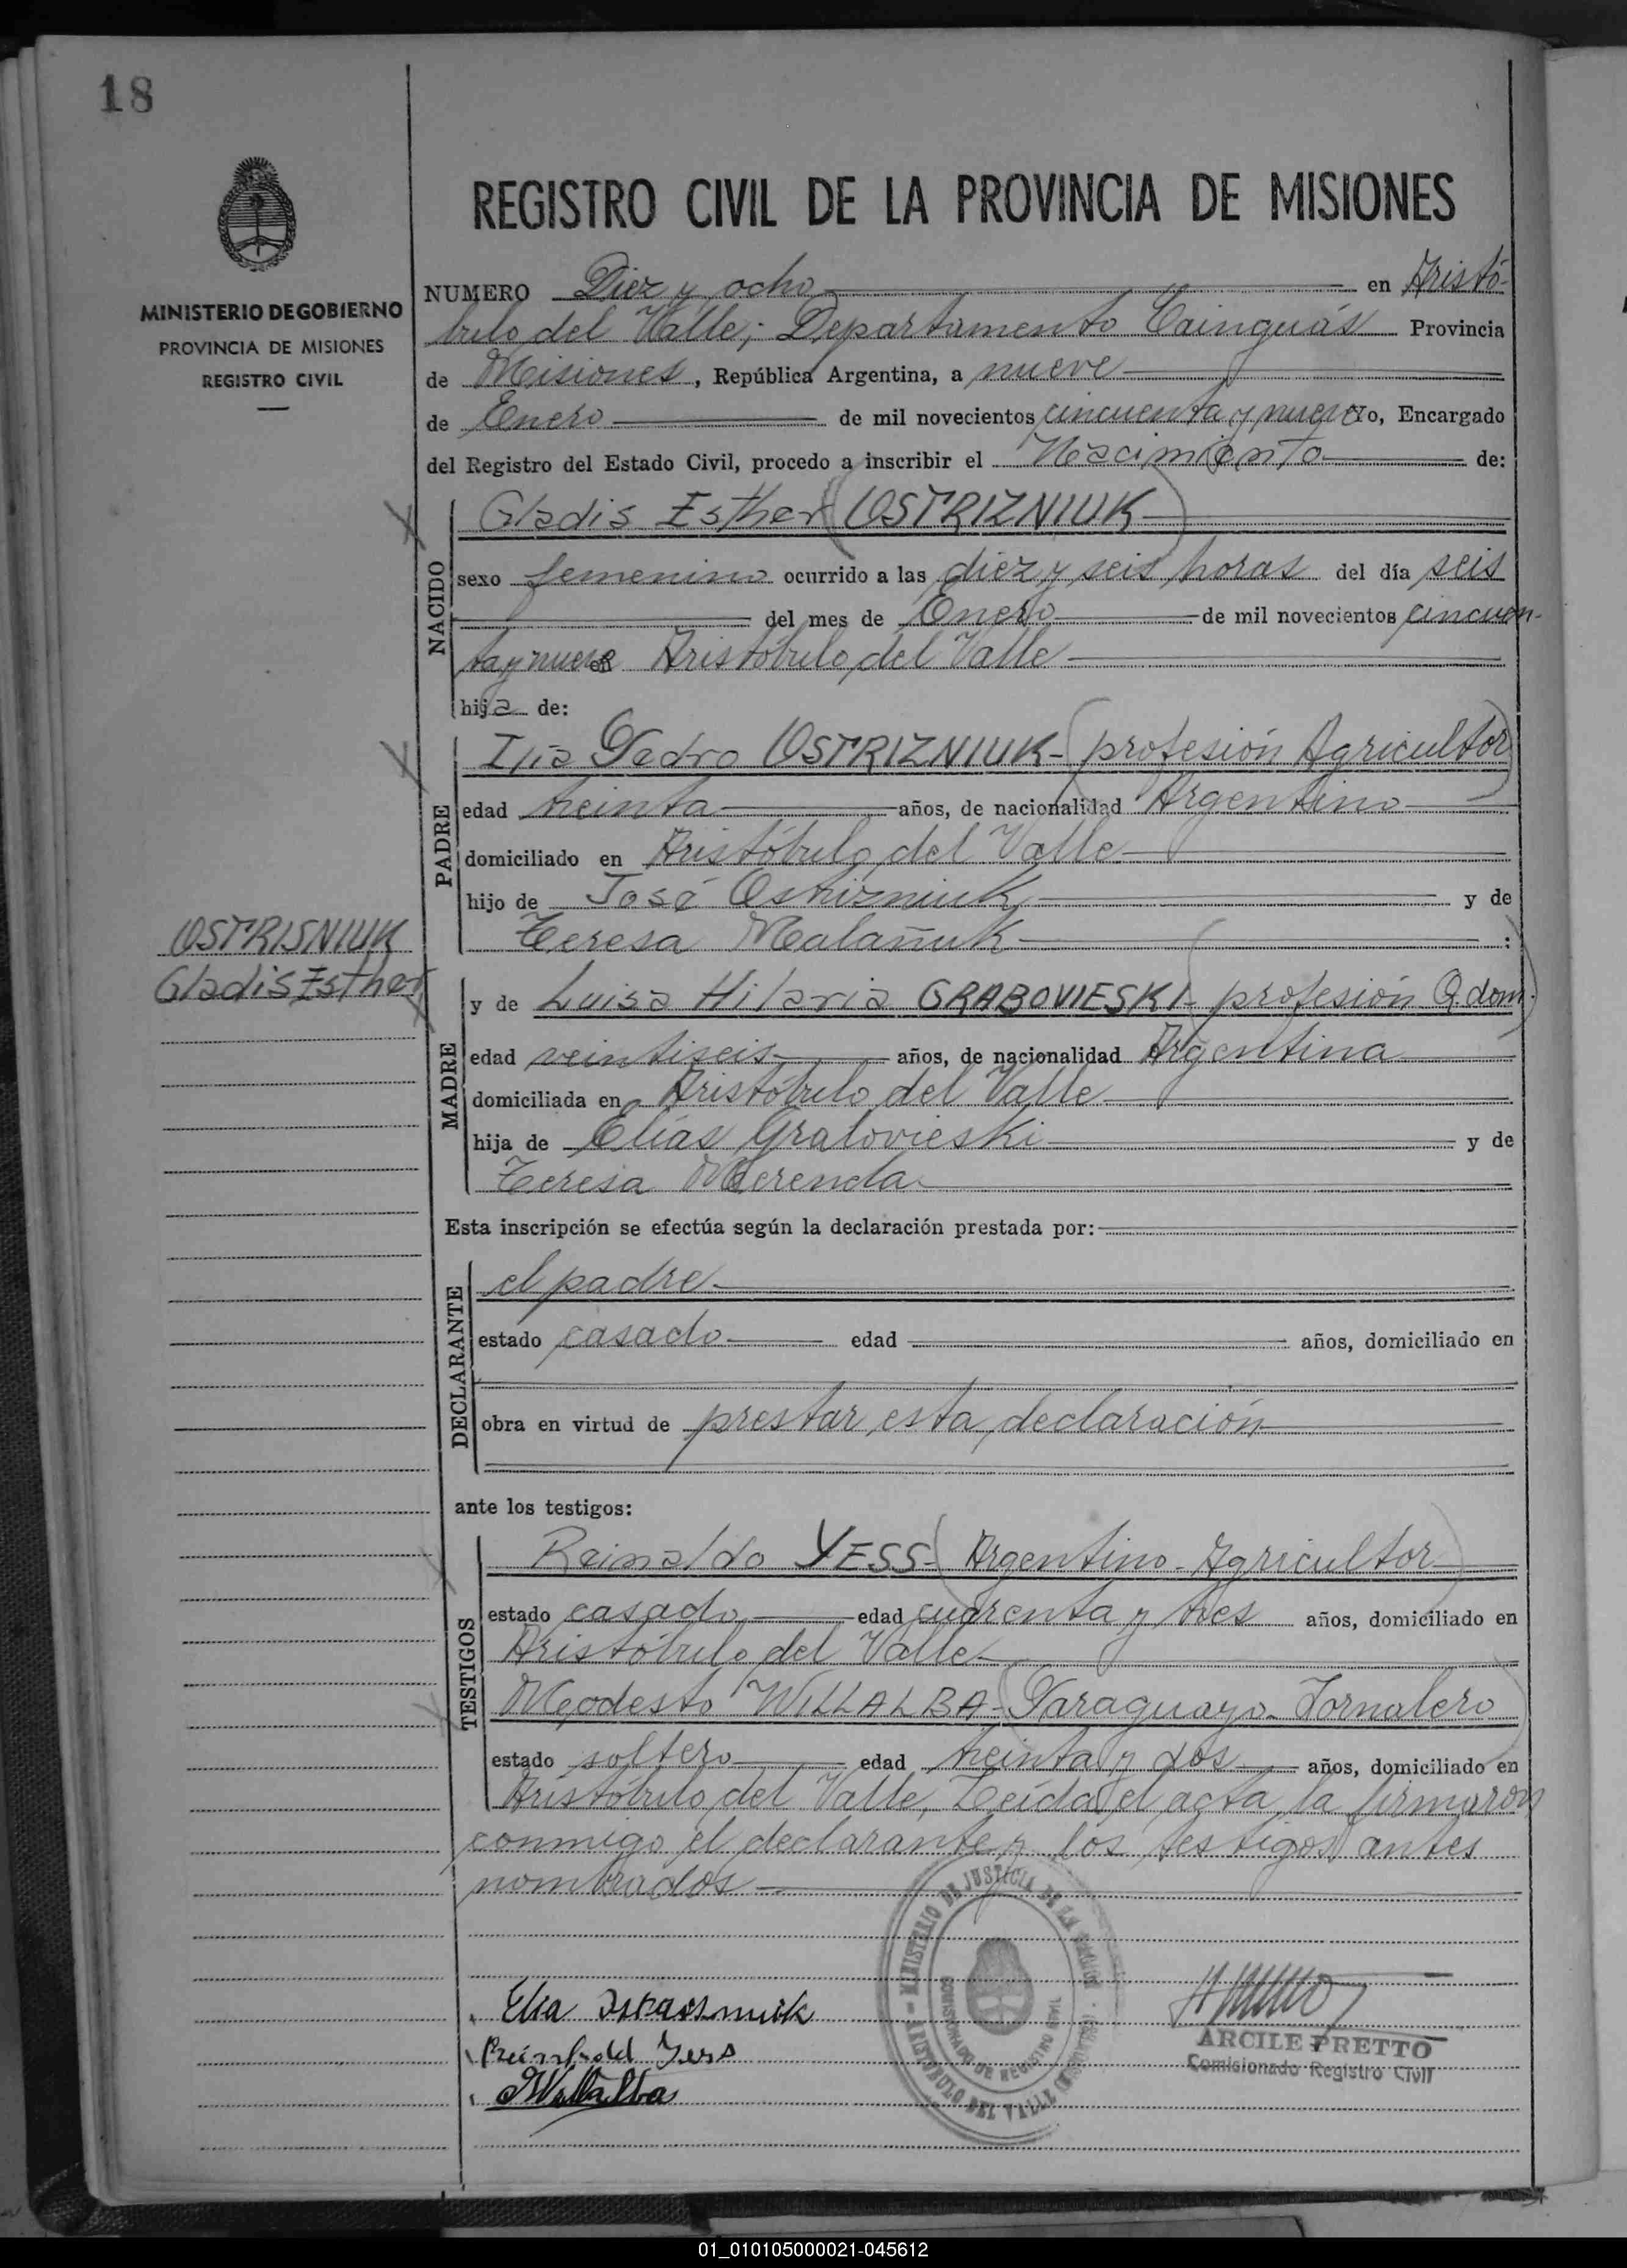 18
MINISTERIO DE GOBIERNO
PROVINCIA DE MISIONES
REGISTRO CIVIL
REGISTRO CIVIL DE LA PROVINCIA DE MISIONES
NUMERO Diez y ocho en Aristó-
bulo del Valle; Departamento Cainguás Provincia
de Misiones, República Argentina, a nueve
de Enero de mil novecientos cincuenta y nueve yo, Encargado
del Registro del Estado Civil, procedo a inscribir el Nacimiento de:
NACIDO
Gladis Esther (OSTRIZNIUK)
sexo femenino ocurrido a las diez y seis horas del día seis
del mes de Enero de mil novecientos cincuen-
ta y nueve en Aristóbulo del Valle
hija de:
PADRE
Ilia Pedro OSTRIZNIUK - (profesión Agricultor)
edad treinta años, de nacionalidad Argentino
domiciliado en Aristóbulo del Valle
hijo de José Ostrizniuk y de
Teresa Malañuk :
OSTRISNIUK
Gladis Esther
MADRE
y de Luisa Hilaria GRABOVIESKI - (profesión Q. dom.)
edad veintiseis años, de nacionalidad Argentina
domiciliada en Aristóbulo del Valle
hija de Elías Grabovieski y de
Teresa Merenda
Esta inscripción se efectúa según la declaración prestada por:
DECLARANTE
el padre
estado casado edad años, domiciliado en
obra en virtud de prestar esta declaración
ante los testigos:
TESTIGOS
Reinaldo YESS - (Argentino - Agricultor)
estado casado edad cuarenta y tres años, domiciliado en
Aristóbulo del Valle
Modesto WILLALBA - (Paraguayo - Jornalero)
estado soltero edad treinta y dos años, domiciliado en
Aristóbulo del Valle, Leída el acta la firmaron
conmigo el declarante y los testigos antes
nombrados
MINISTERIO DE JUSTICIA DE LA
COMISIONADO DE REGISTRO CIVIL
ARISTOBULO DEL VALLE
Elia
Yess
MWillalba
ARCILE PRETTO
Comisionado Registro Civil
01_010105000021-045612